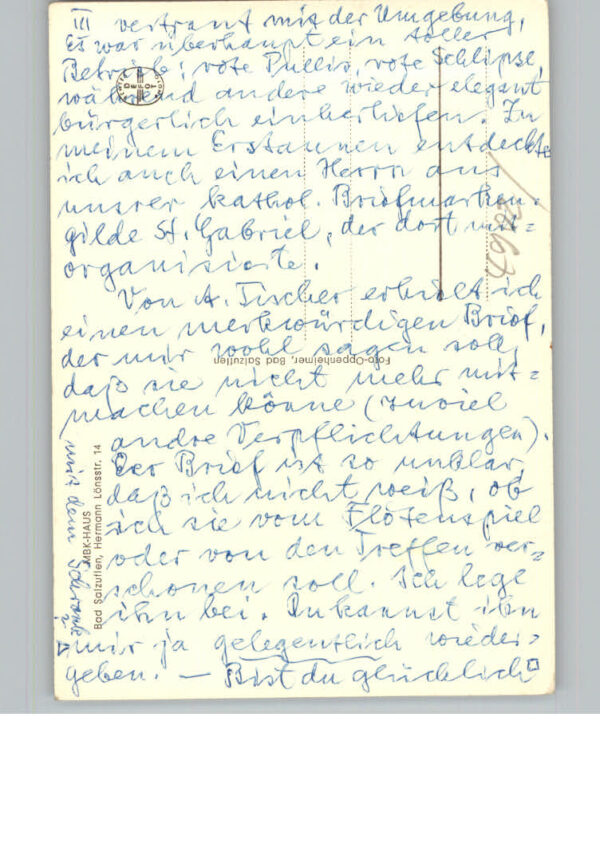 III vertraut mit der Umgebung,
Es war überhaupt ein toller
Betrieb: rote Pullis, rote Schlipse,
während andere wieder elegant
bürgerlich einherliefen. Zu
meinem Erstaunen entdeckte
ich auch einen Herrn aus
unsrer kathol. Briefmarken-
gilde St. Gabriel, der dort mit=
organisierte.
Von A. Tischer erhielt ich
einen merkwürdigen Brief,
der mir wohl sagen soll,
daß sie nicht mehr mit=
machen könne (zuviel
andre Verpflichtungen).
Der Brief ist so unklar,
daß ich nicht weiß, ob
ich sie vom Flötenspiel
oder von den Treffen ver=
schonen soll. Ich lege
ihn bei. Du kannst ihn
mir ja gelegentlich wieder=
geben. — Bist du glücklich
mit dem Schrank
?
MBK-HAUS
Bad Salzuflen, Hermann Lönsstr. 14
Foto-Oppenheimer, Bad Salzuflen